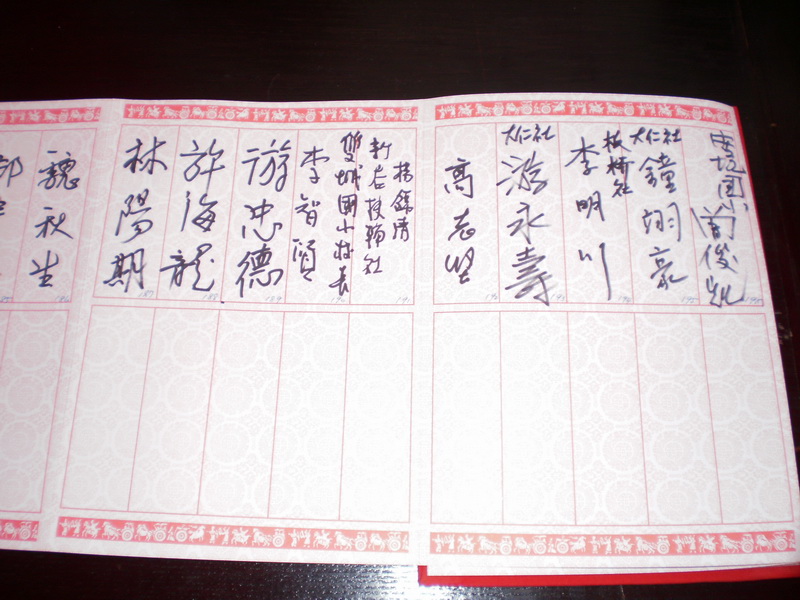 安坑國小 俊凱
大仁社 鐘翊豪
板橋社 李明川
大仁社 游永壽
高志堅
新店扶輪社 楊錦清
雙城國小校長 李智賢
游忠德
許海龍
林陽期
魏秋生